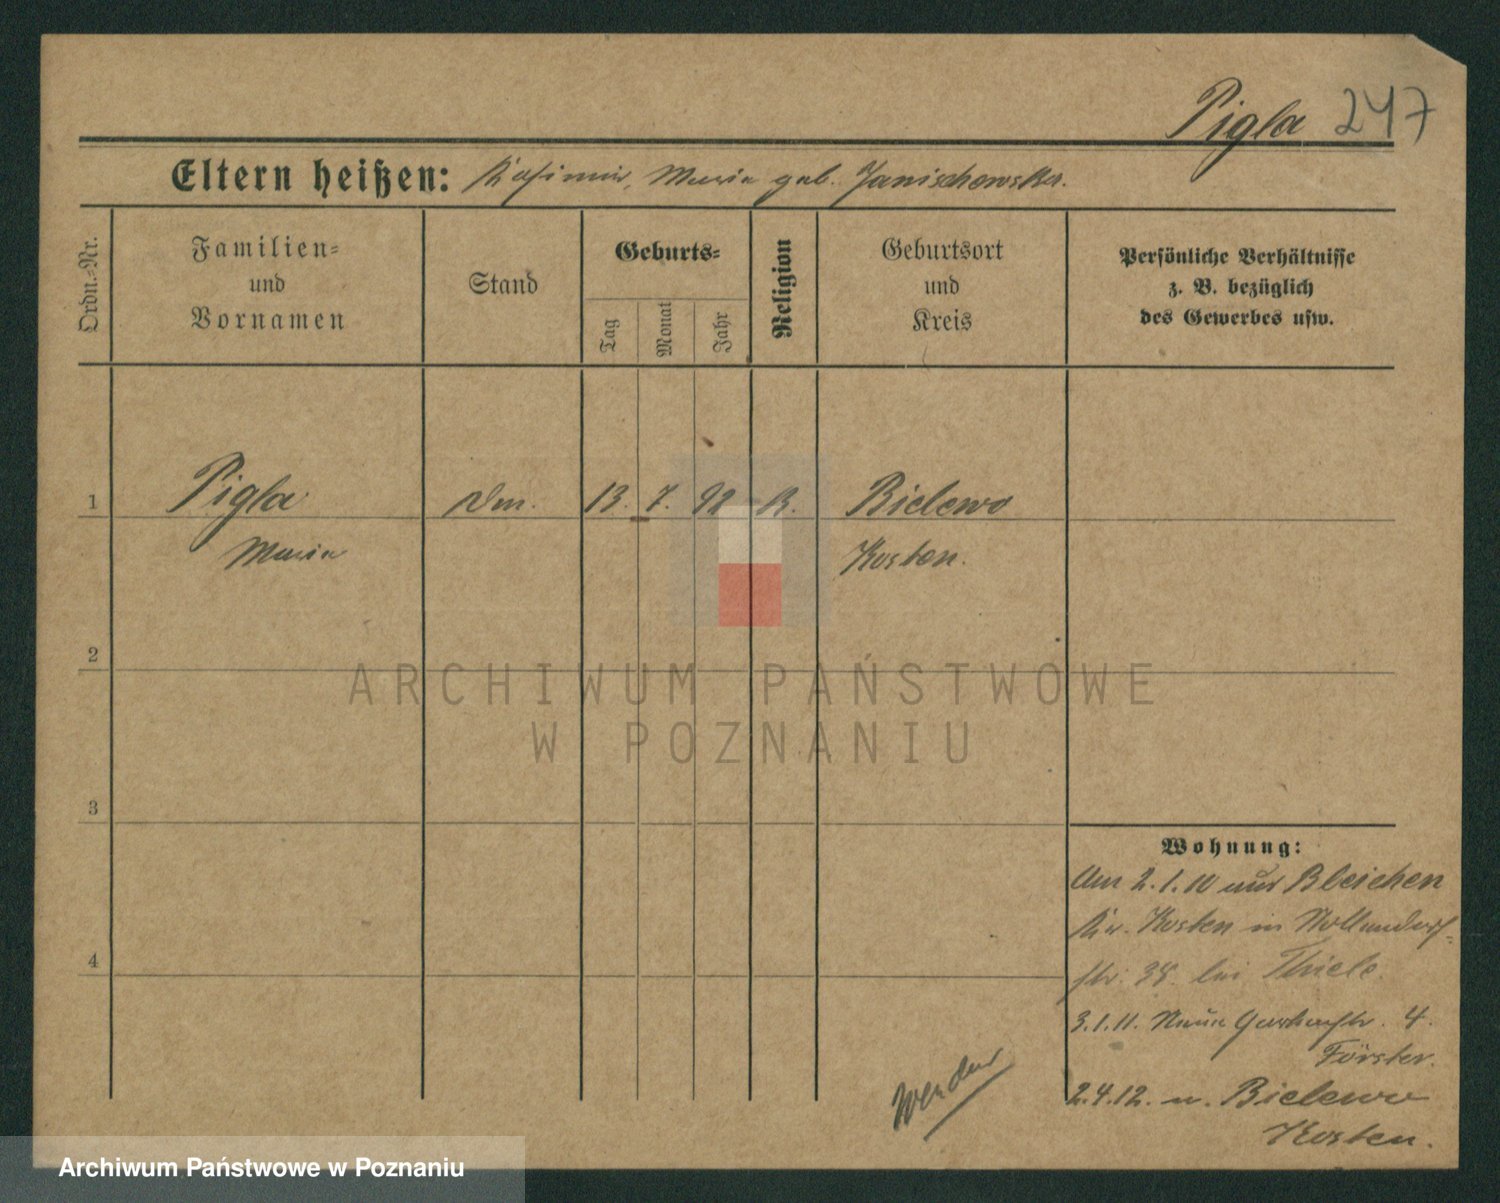 Pigla 247
Eltern heißen: Kasimir, Maria geb. Janischowska.
Ordn.-Nr.
Familien- und Vornamen
Stand
Geburts-
Tag
Monat
Jahr
Religion
Geburtsort und Kreis
Persönliche Verhältnisse
z. B. bezüglich
des Gewerbes usw.
1 Pigla 13. 7. 92 K. Bielewo
Maria Kosten.
2
ARCHIWUM PAŃSTWOWE
W POZNANIU
3
4
Wohnung:
Am 2.1.10 aus Bleichen
Kr. Kosten in Nollendorf-
str. 35. bei Thiele.
3.1.11. Neue Gartenstr. 4.
Förster.
2.4.12. n. Bielewo
Kosten.
Wenden
Archiwum Państwowe w Poznaniu